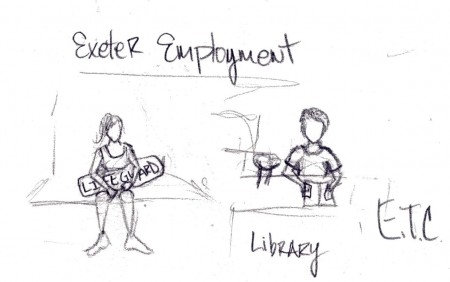 Exeter Employment
LIFEGUARD
LIBRARY
E.T.C.